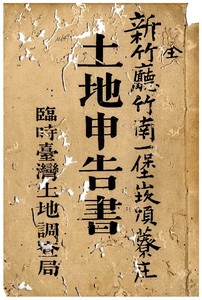 全
新竹廳竹南一堡崁頂藔庄
土地申告書
臨時臺灣土地調查局